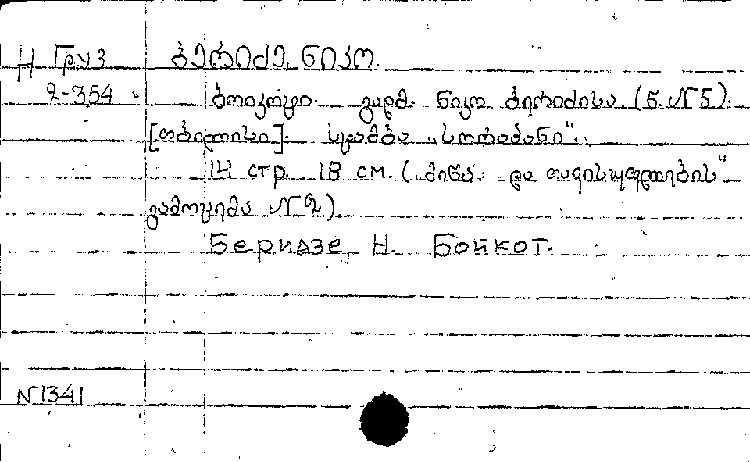 Н Груз ბერიძე, ნიკო.
2-354 ბოიკოტი. გადმ. ნიკო ბერიძისა (ნ. №5).
[თბილისი]. სტამბა „სორაპანი“.
14 стр. 18 см. („მიწა და თავისუფლების“
გამოცემა №2).
Беридзе, Н. Бойкот.
N1341